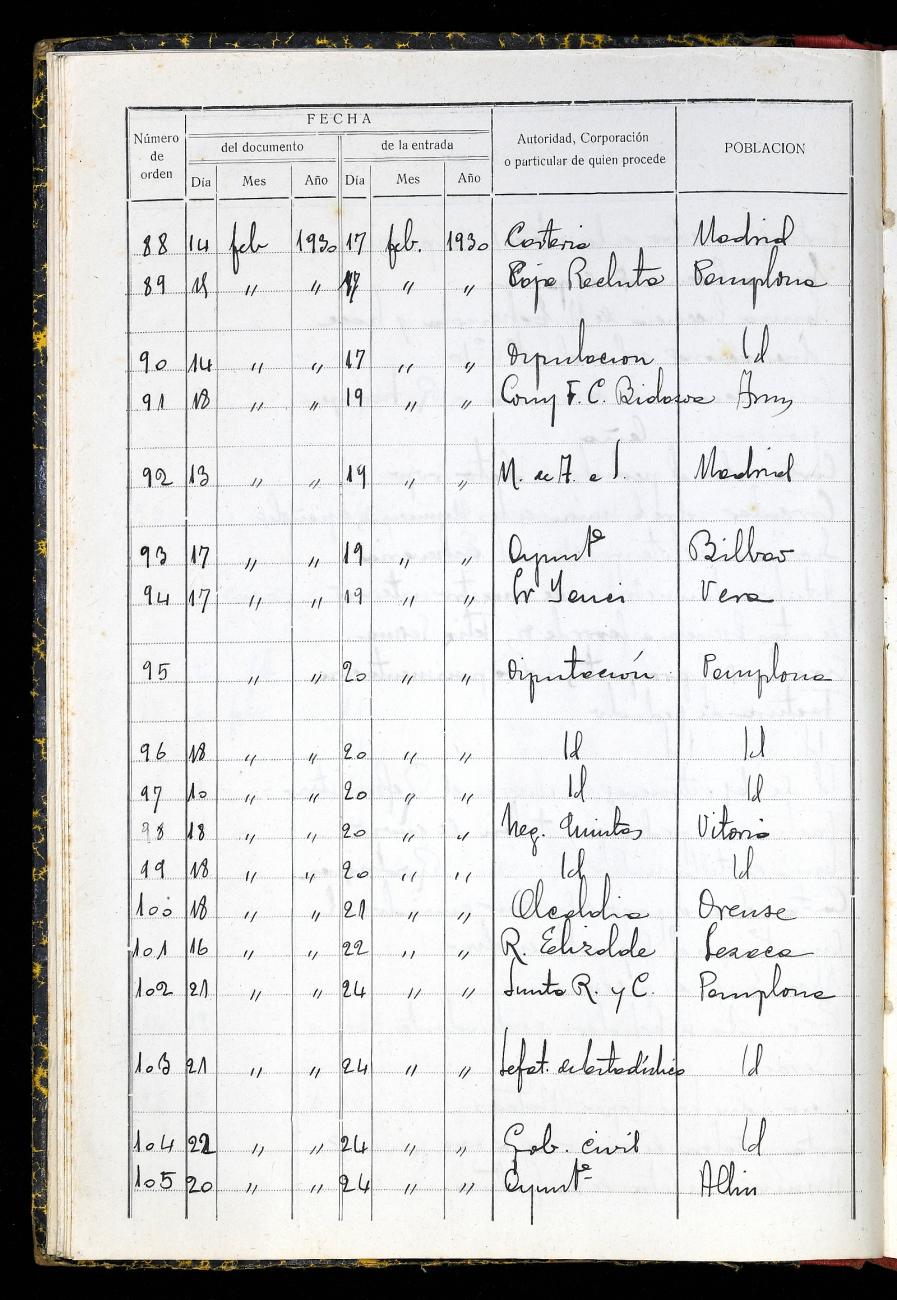 FECHA
Número de orden | del documento | de la entrada | Autoridad, Corporación o particular de quien procede | POBLACION
Día | Mes | Año | Día | Mes | Año
88 14 feb 1930 17 feb. 1930 Cartería Madrid
89 " " 17 " " Caja Recluta Pamplona
90 14 " " 17 " " Diputacion Id
91 18 " " 19 " " Comp F. C. Bidasoa Irun
92 13 " " 19 " " Madrid
93 17 " " 19 " " Ayuntº Bilbao
94 17 " " 19 " " Sr Vera
95 " " 20 " " Diputación Pamplona
96 18 " " 20 " " Id Id
97 10 " " 20 " " Id Id
98 18 " " 20 " " Neg. Quintas Vitoria
99 18 " " 20 " " Id Id
100 18 " " 21 " " Alcaldia Orense
101 16 " " 22 " " R. Elizalde Lesaca
102 21 " " 24 " " Junta R. y C. Pamplona
103 21 " " 24 " " Jefat. de Estadística Id
104 22 " " 24 " " Gob. civil Id
105 20 " " 24 " " Ayuntº